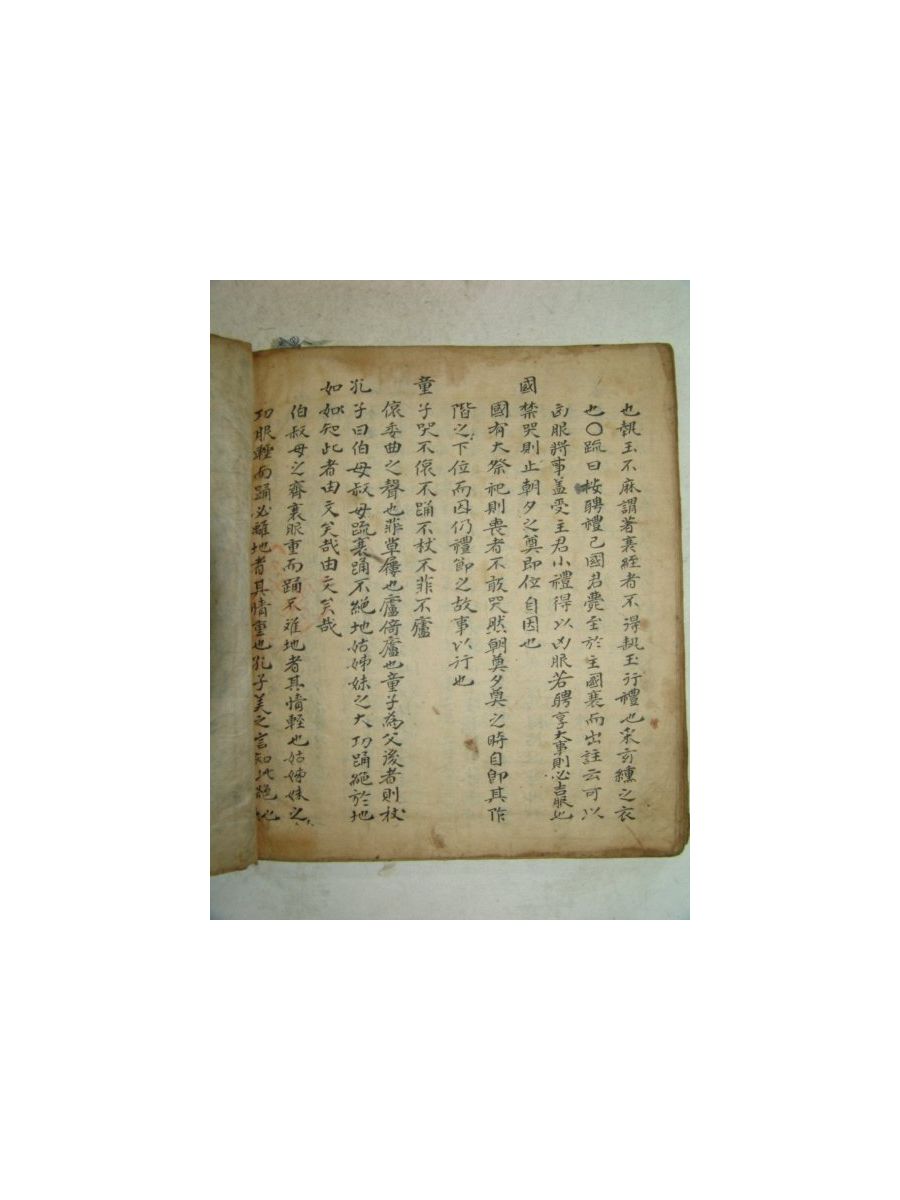 也執玉不麻謂著衰絰者不得執玉行禮也采玄纁之衣
也〇疏曰按聘禮己國君薨至於主國衰而出註云可以
凶服將事盖受主君小禮得以凶服若聘享大事則必吉服也
國禁哭則止朝夕之奠即位自因也
國有大祭祀則喪者不敢哭然朝奠夕奠之時自即其作
階之下位而因仍禮節之故事以行也
童子哭不偯不踊不杖不菲不廬
偯委曲之聲也菲草屨也廬倚廬也童子為父後者則杖
孔子曰伯母叔母疏衰踊不絕地姑姊妹之大功踊絕於地
如如知此者由文矣哉由文矣哉
伯叔母之齊衰服重而踊不难地者其情輕也姑姊妹之
功服輕而踊必離地者其情重也孔子美之言知此絕也